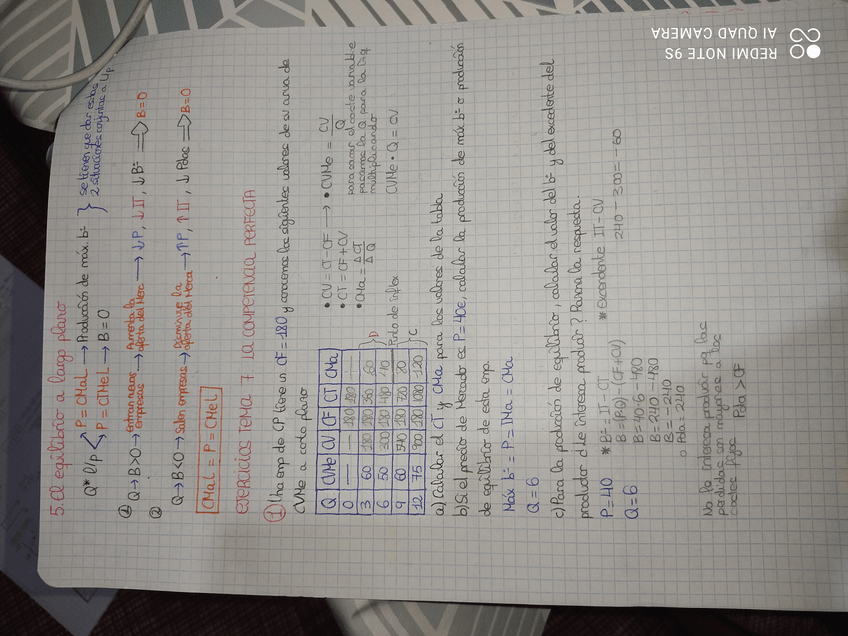 5. El equilibrio a largo plazo
Q* l/p P = CMaL → Producción de máx bº } se tienen que dar estas
P = CTMeL → B = 0 2 situaciones conjuntas a l/p
① Q → B>0 → entran nuevas empresas → Aumenta la oferta del Merc → ↓P, ↓IT, ↓Bº ⇒ B=0
②
Q → B<0 → salen empresas → Disminuye la oferta del Merca → ↑P, ↑IT, ↓Pdas ⇒ B=0
CMaL = P = CMeL
EJERCICIOS TEMA 7 LA COMPETENCIA PERFECTA
① Una emp de CP tiene un CF = 180 y conocemos los siguientes valores de su curva de
CVMe a corto plazo
Q CVMe CV CF CT CMa
0 — — 180 180 —
3 60 180 180 360 60
6 50 300 180 480 40
9 60 540 180 720 80
12 75 900 180 1080 120
Punto de inflex
• CV = CT - CF → • CVMe = CV/Q
• CT = CF + CV
• CMa = ΔCT/ΔQ
para sacar el coste variable
pasamos la Q para la izq
multiplicando
CVMe · Q = CV
a) Calcular el CT y CMa para los valores de la tabla
b) Si el precio de Mercado es P=40€, calcular la producción de máx bº o producción
de equilibrio de esta emp.
Máx bº = P = IMa = CMa
Q = 6
c) Para la producción de equilibrio, calcular el valor del bº y del excedente del
productor ¿le interesa producir? Razona la respuesta.
P = 40 * Bº = IT - CT * Excedente IT - CV
Q = 6 B = (P·Q) - (CF+CV) 240 - 300 = -60
B = 40·6 - 480
B = 240 - 480
B = -240
o Pdta = 240
No le interesa producir pq las
perdidas son mayores a los
costes fijos Pdta > CF
REDMI NOTE 9S
AI QUAD CAMERA